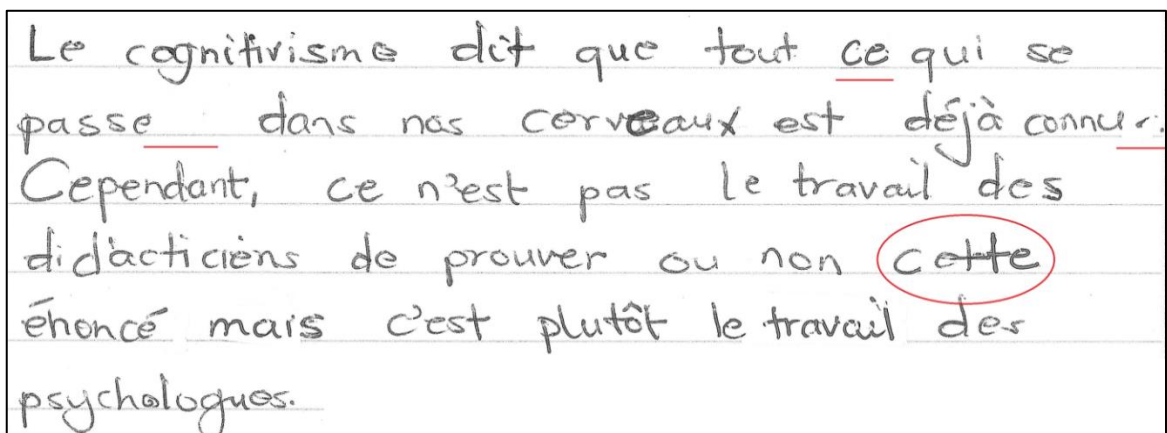 Le cognitivisme dit que tout ce qui se
passe dans nos cerveaux est déjà connu.
Cependant, ce n'est pas le travail des
didacticiens de prouver ou non cette
énoncé mais c'est plutôt le travail des
psychologues.